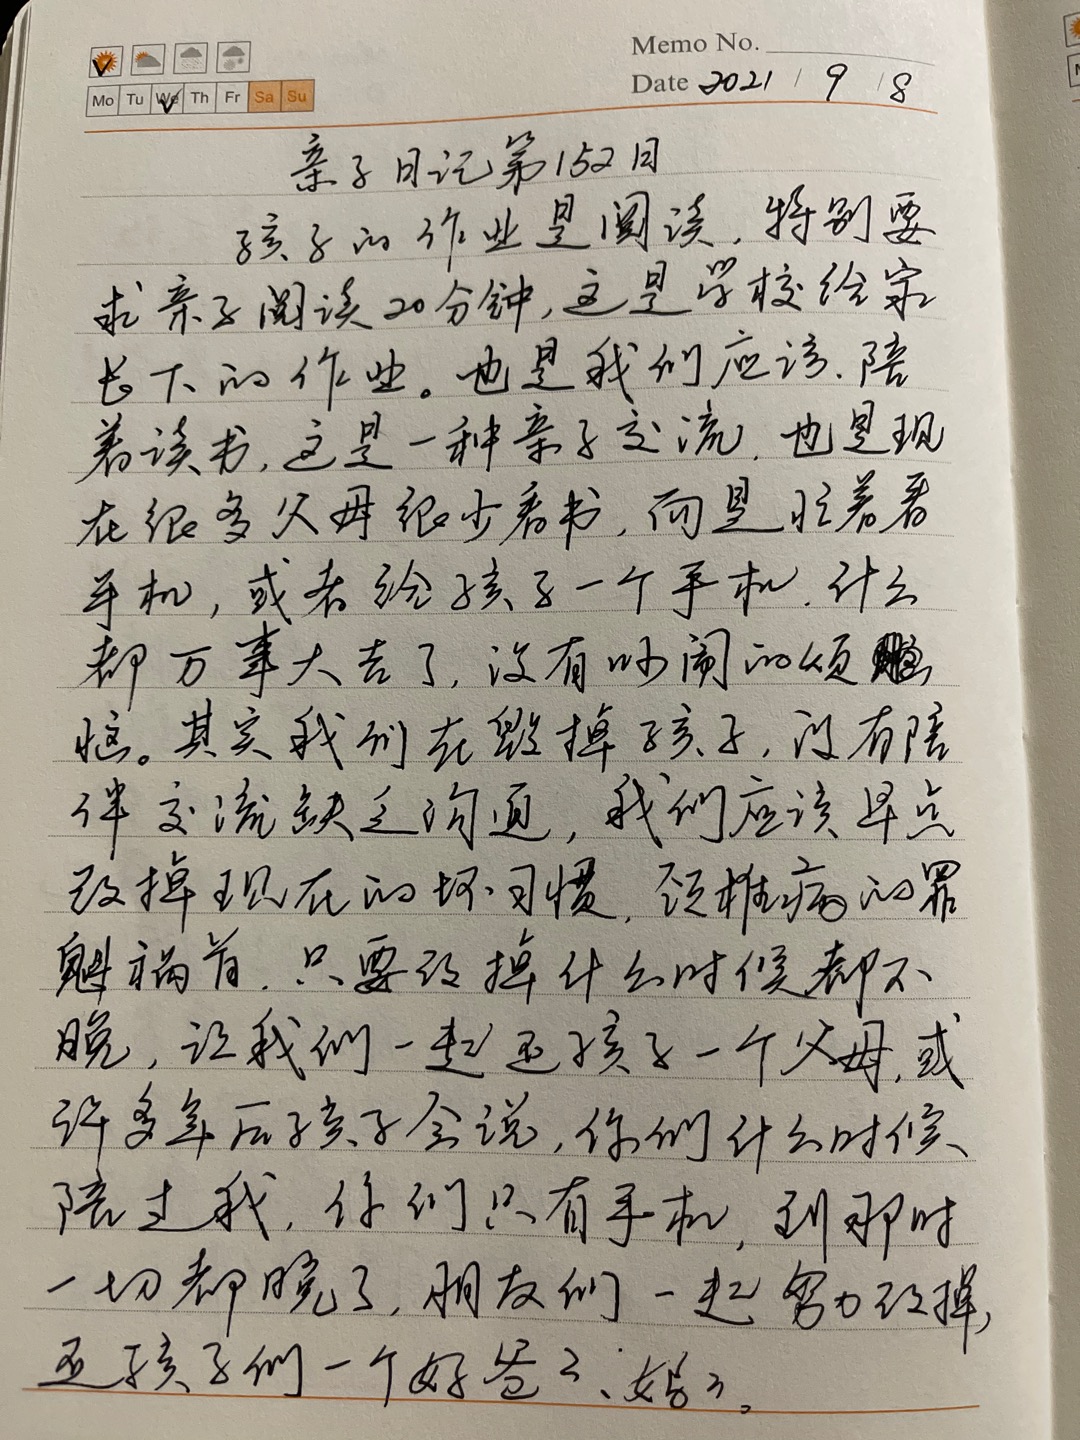 Memo No.
Mo Tu We Th Fr Sa Su
Date 2021 / 9 / 8
亲子日记第152日
孩子的作业是阅读，特别要
求亲子阅读20分钟，这是学校给家
长下的作业。也是我们应该、陪
着读书，这是一种亲子交流，也是现
在很多父母很少看书，而是忙着看
手机，或者给孩子一个手机，什么
都万事大吉了，没有吵闹的烦
恼。其实我们在毁掉孩子，没有陪
伴交流缺乏沟通，我们应该早点
改掉现在的坏习惯，颈椎病的罪
魁祸首，只要改掉什么时候都不
晚，让我们一起还孩子一个父母，或
许多年后孩子会说，你们什么时候、
陪过我，你们只有手机，到那时
一切都晚了，朋友们一起努力改掉，
还孩子们一个好爸々、妈々。